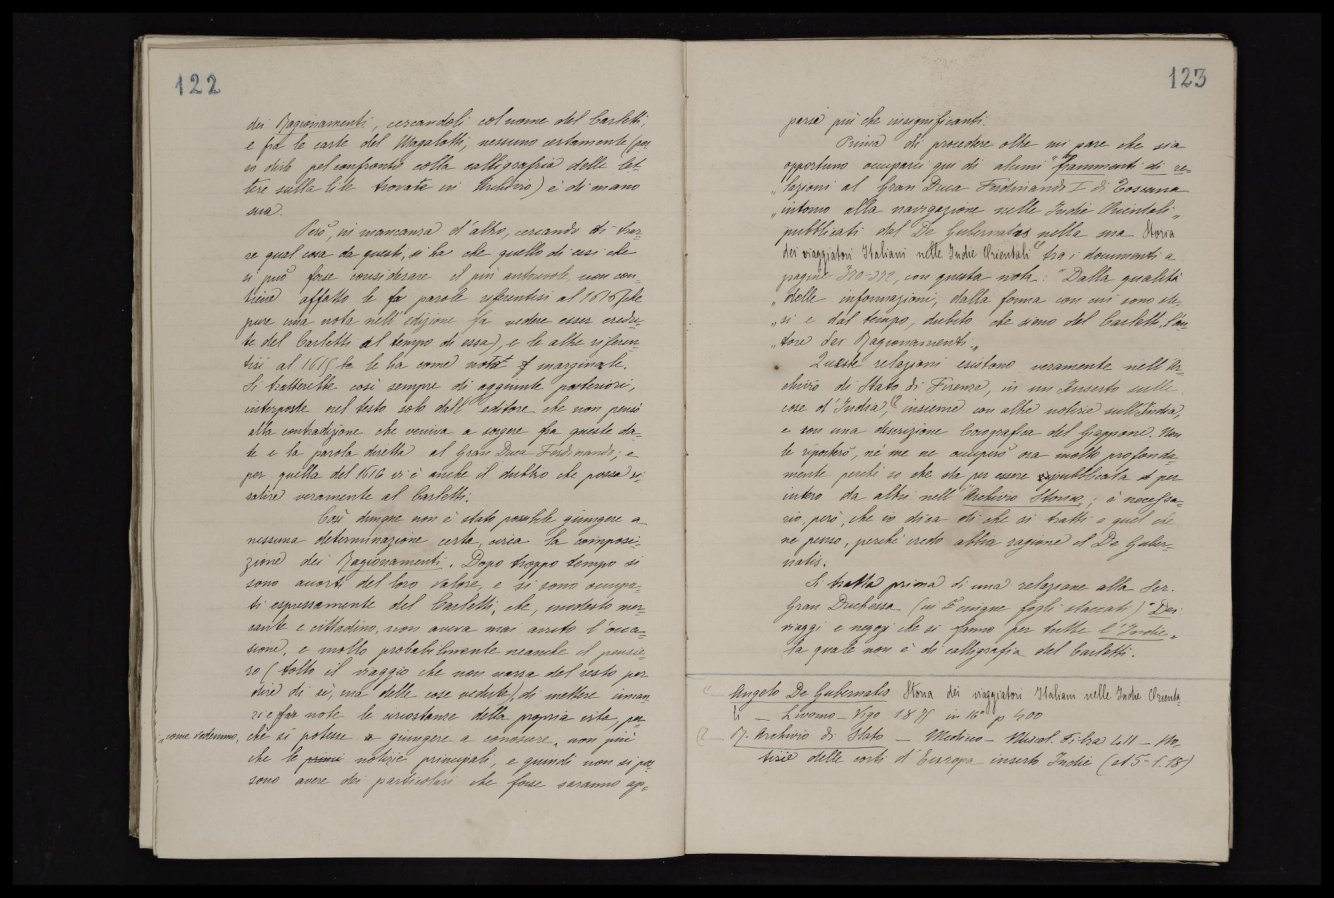 122
dei Ragionamenti, cercandoli col nome del Carletti
e fra le carte del Magalotti, nessuno certamente (pos=
so dirlo pel confronto colla calligrafia delle let=
tere sulla lite trovate in Archivio) è di mano
sua.
Però, in mancanza d'altro, cercando di trar=
re qual cosa da questi, si ha che quello di essi che
si può forse considerare il più autorevole, non con=
tiene affatto le parole referentisi al 1616 (che
pure una nota nell'edizione fa vedere esser credu=
te del Carletti al tempo di essa), e le altre referen=
tisi al 1615 le ha come nota marginale.
Si tratterebbe così sempre di aggiunte posteriori,
interposte nel testo solo dall'editore che non pensò
alla contradizione che veniva a sorgere fra queste da=
te e la parola diretta al Gran Duca Ferdinando; e
per quella del 1616 vi è anche il dubbio che possa ri=
salire veramente al Carletti.
Così dunque non è stato possibile giungere a
nessuna determinazione certa, circa la composi=
zione dei Ragionamenti. Dopo troppo tempo si
sono accorti del loro valore, e si sono occupa=
ti espressamente del Carletti, che, modesto mer=
cante e cittadino, non aveva mai avuto l'occa=
sione, e molto probabilmente neanche il pensie=
ro (tolto il viaggio che non narra del resto per
dire di sè, ma delle cose vedute), di mettere innan
zi e far note le circostanze della propria vita, per=
, come vedemmo, chè si potesse giungere a conoscere, non più
che le notizie principali, e quindi non si pos=
sono avere dei particolari che forse saranno ap=
123
parsi più che insignificanti.
Prima di procedere oltre mi pare che sia
opportuno occuparsi qui di alcuni "frammenti di re=
"lazioni al Gran Duca Ferdinando I di Toscana
"intorno alla navigazione nelle Indie Orientali"
pubblicati dal De Gubernatis nella sua Storia
dei viaggiatori Italiani nelle Indie Orientali (1 tra i documenti a
pagine, con questa nota: "Dalla qualità
"delle informazioni, dalla forma con cui sono ste=
"si e dal tempo, dubito che sieno del Carletti, l'au=
"tore dei Ragionamenti".
Queste relazioni esistono veramente nell'Ar=
chivio di Stato di Firenze, in un Inserto sulle
cose d'India, (2 insieme con altre notizie sull'India,
e con una descrizione Corografica del Giappone. Non
le riporterò, nè me ne occuperò ora molto profonda=
mente perchè so che sta per essere pubblicata per
intero da altri nell'Archivio Storico; è necessa=
rio però, che io dica di che si tratti e quel che
ne penso, perchè credo abbia ragione il De Guber=
natis.
Si tratta prima di una relazione alla Ser.
Gran Duchessa (in 5 cinque fogli staccati) "Dei
viaggi e negozi che si fanno per tutte l'Indie"
la quale non è di calligrafia del Carletti.
(1 — Angelo De Gubernatis Storia dei viaggiatori Italiani nelle Indie Orienta
li — Livorno — Vigo 1875 in 16° p 400
(2 — R. Archivio di Stato — Mediceo — Miscel. Filza — No=
tizie delle corti d'Europa inserto Indie